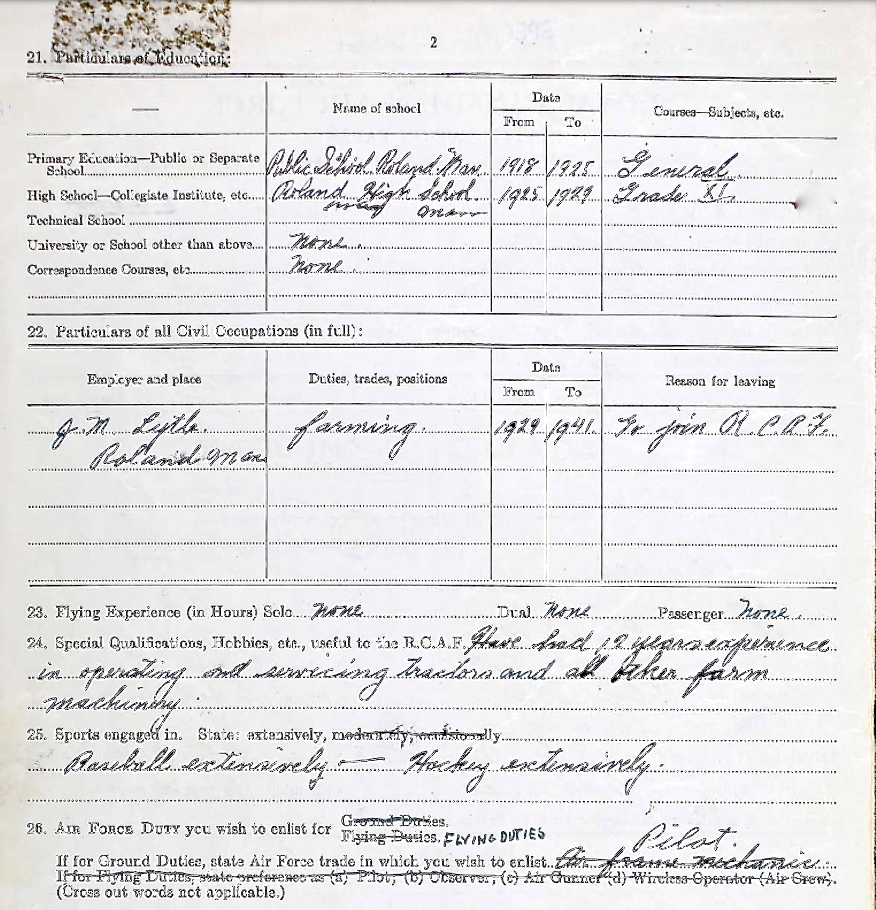 2
21. Particulars of Education:
— Name of school Date Courses—Subjects, etc.
From To
Primary Education—Public or Separate
School Public School Roland Man. 1918 1925 General.
High School—Collegiate Institute, etc. Roland High School. 1925 1929 Grade XI.
Man
Technical School
University or School other than above None.
Correspondence Courses, etc. None.
22. Particulars of all Civil Occupations (in full):
Employer and place Duties, trades, positions Date Reason for leaving
From To
J. M. Lytle. farming. 1929 1941. To join R.C.A.F.
Roland Man
23. Flying Experience (in Hours) Solo None Dual None Passenger None.
24. Special Qualifications, Hobbies, etc., useful to the R.C.A.F. Have had 12 years experience
in operating and servicing tractors and all other farm
machinery
25. Sports engaged in. State: extensively, moderately, occasionally
Baseball extensively — Hockey extensively.
26. AIR FORCE DUTY you wish to enlist for Ground Duties.
Flying Duties. FLYING DUTIES
Pilot.
If for Ground Duties, state Air Force trade in which you wish to enlist Air frame mechanic.
If for Flying Duties, state preference as (a) Pilot; (b) Observer; (c) Air Gunner (d) Wireless Operator (Air Crew).
(Cross out words not applicable.)